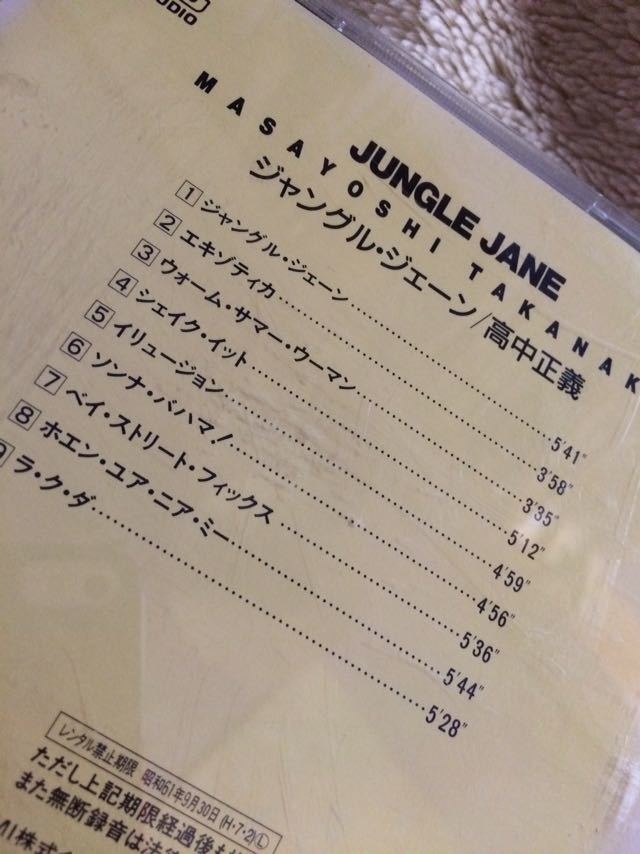 AUDIO
JUNGLE JANE
MASAYOSHI TAKANAK
ジャングル・ジェーン/高中正義
1 ジャングル・ジェーン 5'41"
2 エキゾティカ 3'58"
3 ウォーム・サマー・ウーマン 3'35"
4 シェイク・イット 5'12"
5 イリュージョン 4'59"
6 ソンナ・バハマ! 4'56"
7 ベイ・ストリート・フィックス 5'36"
8 ホエン・ユア・ニア・ミー 5'44"
9 ラ・ク・ダ 5'28"
レンタル禁止期限 昭和61年9月30日(H・7・2)Ⓛ
ただし上記期限経過後も
また無断録音は法
MI株式